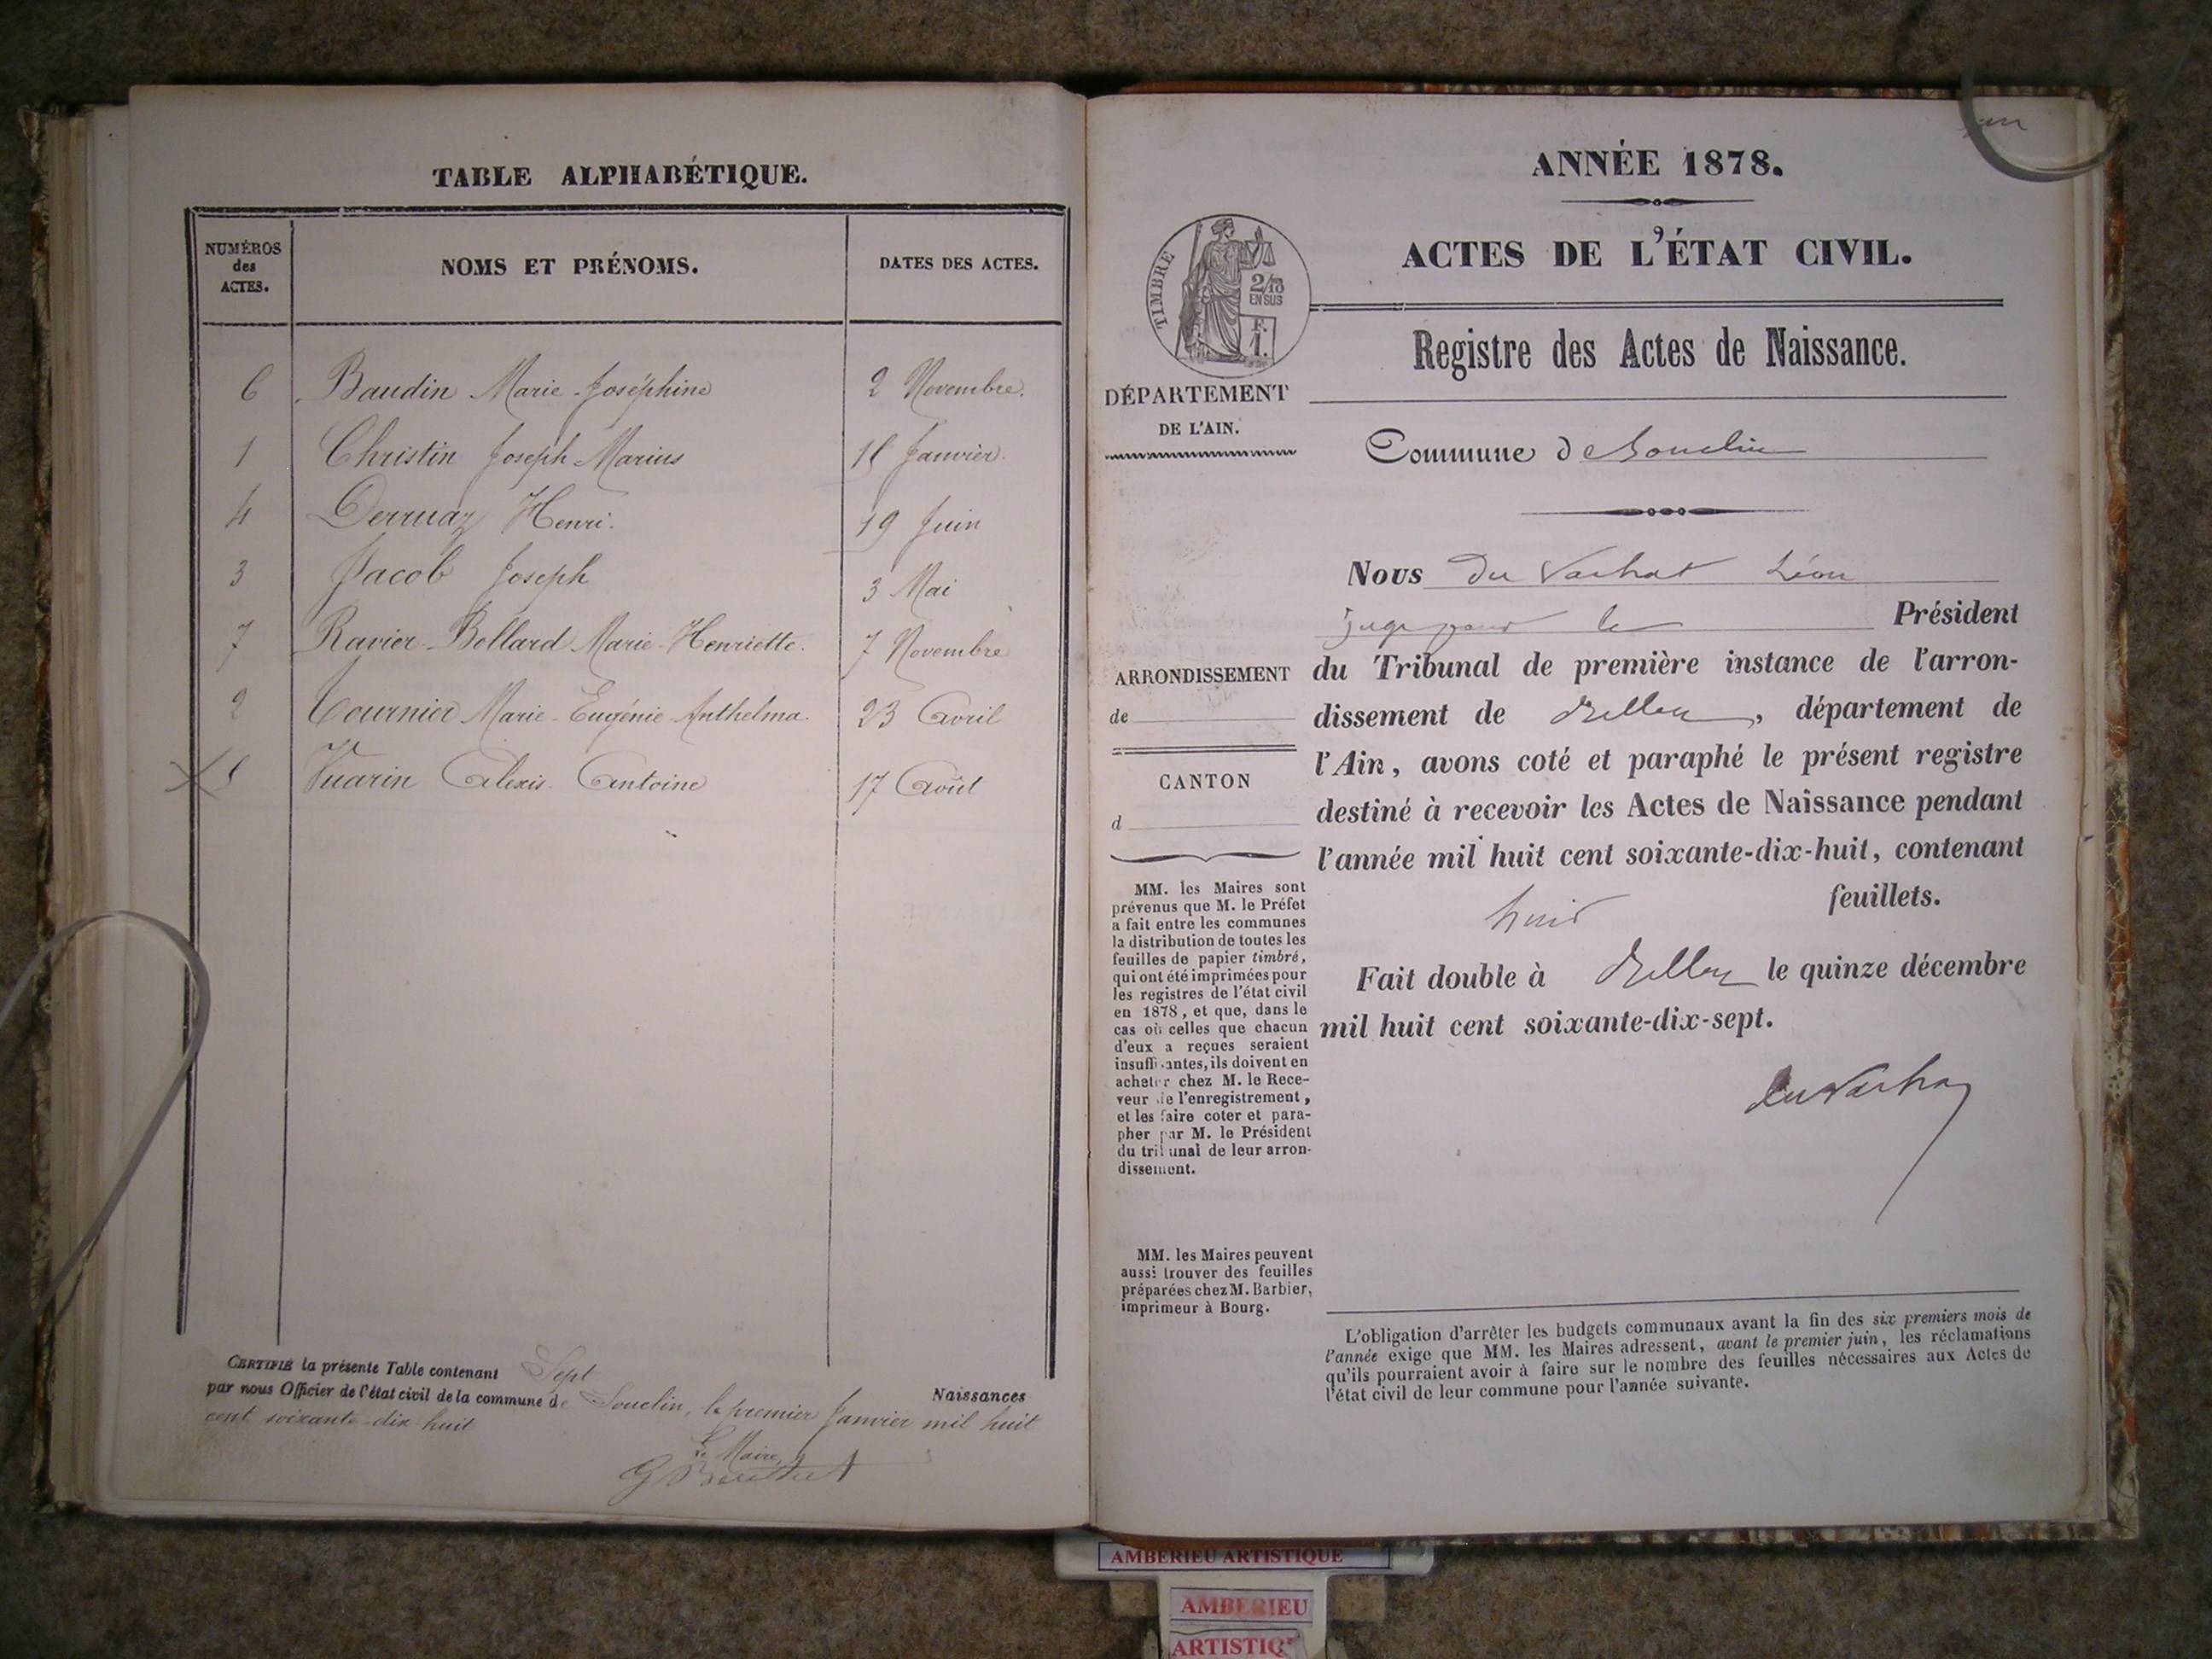 TABLE ALPHABÉTIQUE.
NUMÉROS des ACTES. NOMS ET PRÉNOMS. DATES DES ACTES.
6 Baudin Marie-Joséphine 2 Novembre.
1 Christin Joseph-Marius Janvier.
4 Derruaz Henri. 19 Juin
3 Jacob Joseph 3 Mai
7 Ravier-Bollard Marie-Henriette. 7 Novembre
2 Tournier Marie-Eugénie-Anthelma. 23 Avril
Vuarin Alexis-Antoine 17 Août
CERTIFIÉ la présente Table contenant Sept Naissances
par nous Officier de l'état civil de la commune de Souclin, le premier Janvier mil huit
cent soixante-dix-huit
Le Maire,
un
ANNÉE 1878.
ACTES DE L'ÉTAT CIVIL.
TIMBRE
2/10
EN SUS
F.
1.
Registre des Actes de Naissance.
DÉPARTEMENT
DE L'AIN.
Commune de Souclin
Nous Du Vachat Léon
juge pour le Président
du Tribunal de première instance de l'arron-
dissement de Belley, département de
l'Ain, avons coté et paraphé le présent registre
destiné à recevoir les Actes de Naissance pendant
l'année mil huit cent soixante-dix-huit, contenant
huit feuillets.
Fait double à Belley le quinze décembre
mil huit cent soixante-dix-sept.
du Vachat
ARRONDISSEMENT
de
CANTON
d
MM. les Maires sont
prévenus que M. le Préfet
a fait entre les communes
la distribution de toutes les
feuilles de papier timbré,
qui ont été imprimées pour
les registres de l'état civil
en 1878, et que, dans le
cas où celles que chacun
d'eux a reçues seraient
insuffisantes, ils doivent en
acheter chez M. le Rece-
veur de l'enregistrement,
et les faire coter et para-
pher par M. le Président
du tribunal de leur arron-
dissement.
MM. les Maires peuvent
aussi trouver des feuilles
préparées chez M. Barbier,
imprimeur à Bourg.
L'obligation d'arrêter les budgets communaux avant la fin des six premiers mois de
l'année exige que MM. les Maires adressent, avant le premier juin, les réclamations
qu'ils pourraient avoir à faire sur le nombre des feuilles nécessaires aux Actes de
l'état civil de leur commune pour l'année suivante.
AMBERIEU ARTISTIQUE
AMBERIEU
ARTISTIQ